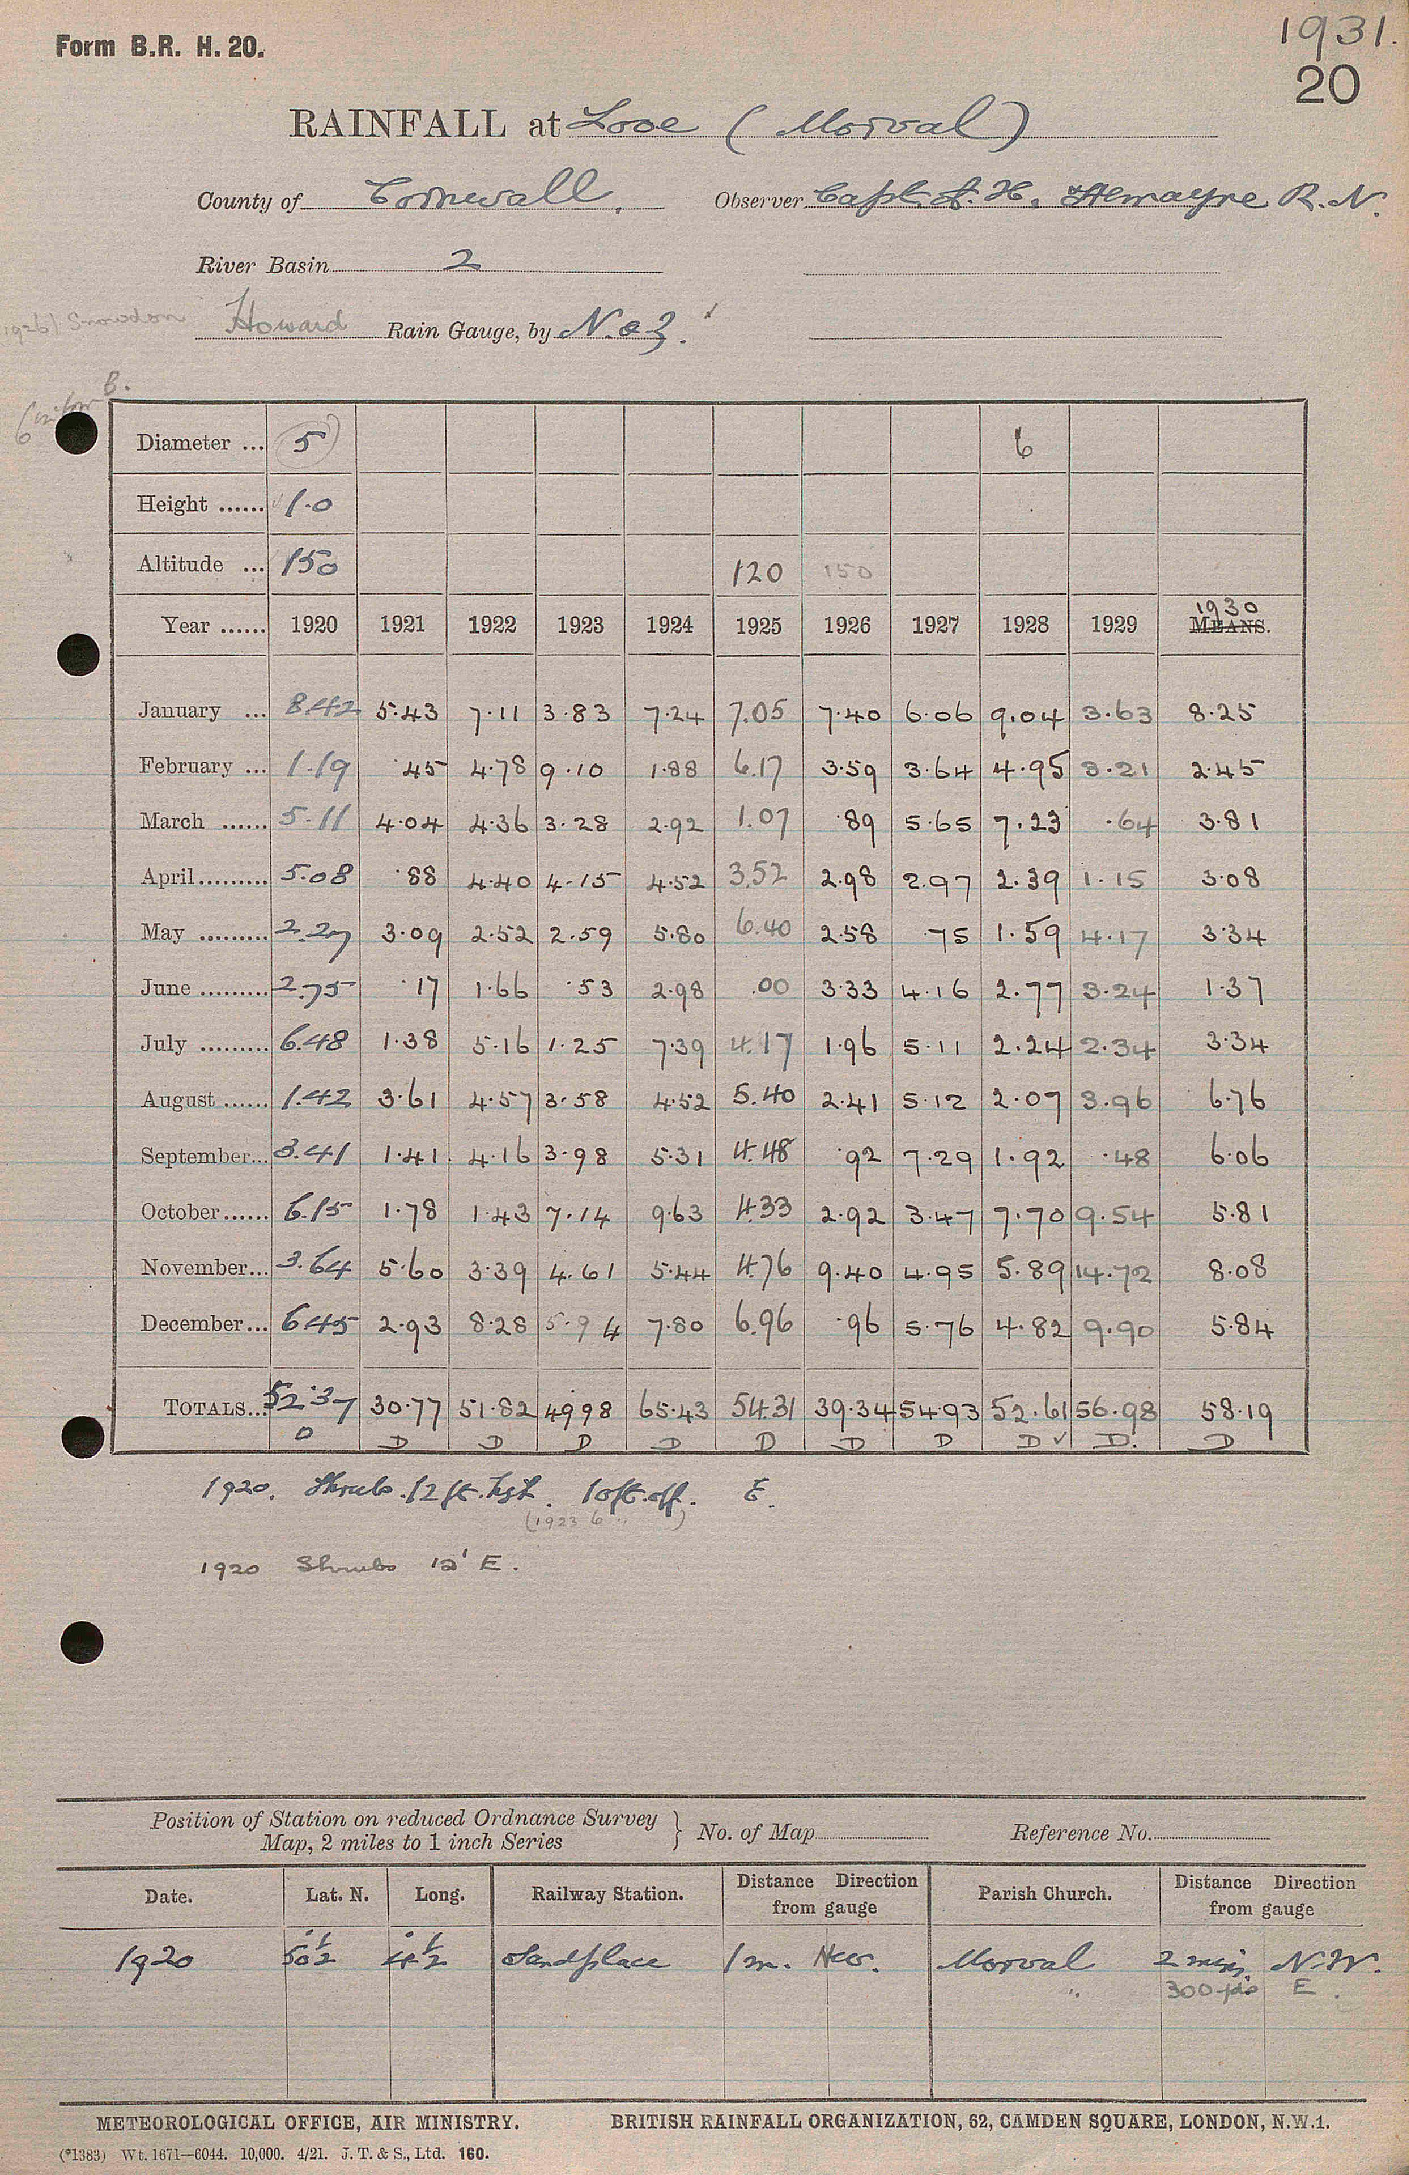 Form B.R. H. 20.
1931.
20
RAINFALL at Looe (Morval)
County of Cornwall. Observer Capt. R.N.
River Basin 2
1926) Snowdon Howard Rain Gauge, by N. & Z.
B.
Diameter ... 5 6
Height ...... 1.0
Altitude ... 150 120 150
Year ...... 1920 1921 1922 1923 1924 1925 1926 1927 1928 1929 1930 MEANS.
January ... 8.42 5.43 7.11 3.83 7.24 7.05 7.40 6.06 9.04 3.63 8.25
February ... 1.19 .45 4.78 9.10 1.88 6.17 3.59 3.64 4.95 3.21 2.45
March ...... 5.11 4.04 4.36 3.28 2.92 1.07 .89 5.65 7.23 .64 3.81
April......... 5.08 .88 4.40 4.15 4.52 3.52 2.98 2.97 2.39 1.15 3.08
May ......... 2.27 3.09 2.52 2.59 5.80 6.40 2.58 .75 1.59 4.17 3.34
June ......... 2.75 .17 1.66 .53 2.98 .00 3.33 4.16 2.77 3.24 1.37
July ......... 6.48 1.38 5.16 1.25 7.39 4.17 1.96 5.11 2.24 2.34 3.34
August ...... 1.42 3.61 4.57 3.58 4.52 5.40 2.41 5.12 2.07 3.96 6.76
September... 3.41 1.41 4.16 3.98 5.31 4.48 .92 7.29 1.92 .48 6.06
October...... 6.15 1.78 1.43 7.14 9.63 4.33 2.92 3.47 7.70 9.54 5.81
November... 3.64 5.60 3.39 4.61 5.44 4.76 9.40 4.95 5.89 14.72 8.08
December... 6.45 2.93 8.28 5.94 7.80 6.96 .96 5.76 4.82 9.90 5.84
TOTALS... 52.37 30.77 51.82 49.98 65.43 54.31 39.34 54.93 52.61 56.98 58.19
D D D D D D D D D ✓ D. D
1920. Shrubs. 12 ft. high. 10 ft. off. E.
(1923 6 " )
1920 Shrubs 12' E.
Position of Station on reduced Ordnance Survey
Map, 2 miles to 1 inch Series } No. of Map Reference No.
Date. Lat. N. Long. Railway Station. Distance Direction from gauge Parish Church. Distance Direction from gauge
1920 50° ½ 4° ½ Sandplace 1 m. Morval 2 N.W.
" 300 yds E.
METEOROLOGICAL OFFICE, AIR MINISTRY. BRITISH RAINFALL ORGANIZATION, 62, CAMDEN SQUARE, LONDON, N.W.1.
(*1383) Wt. 1671—6044. 10,000. 4/21. J. T. & S., Ltd. 160.